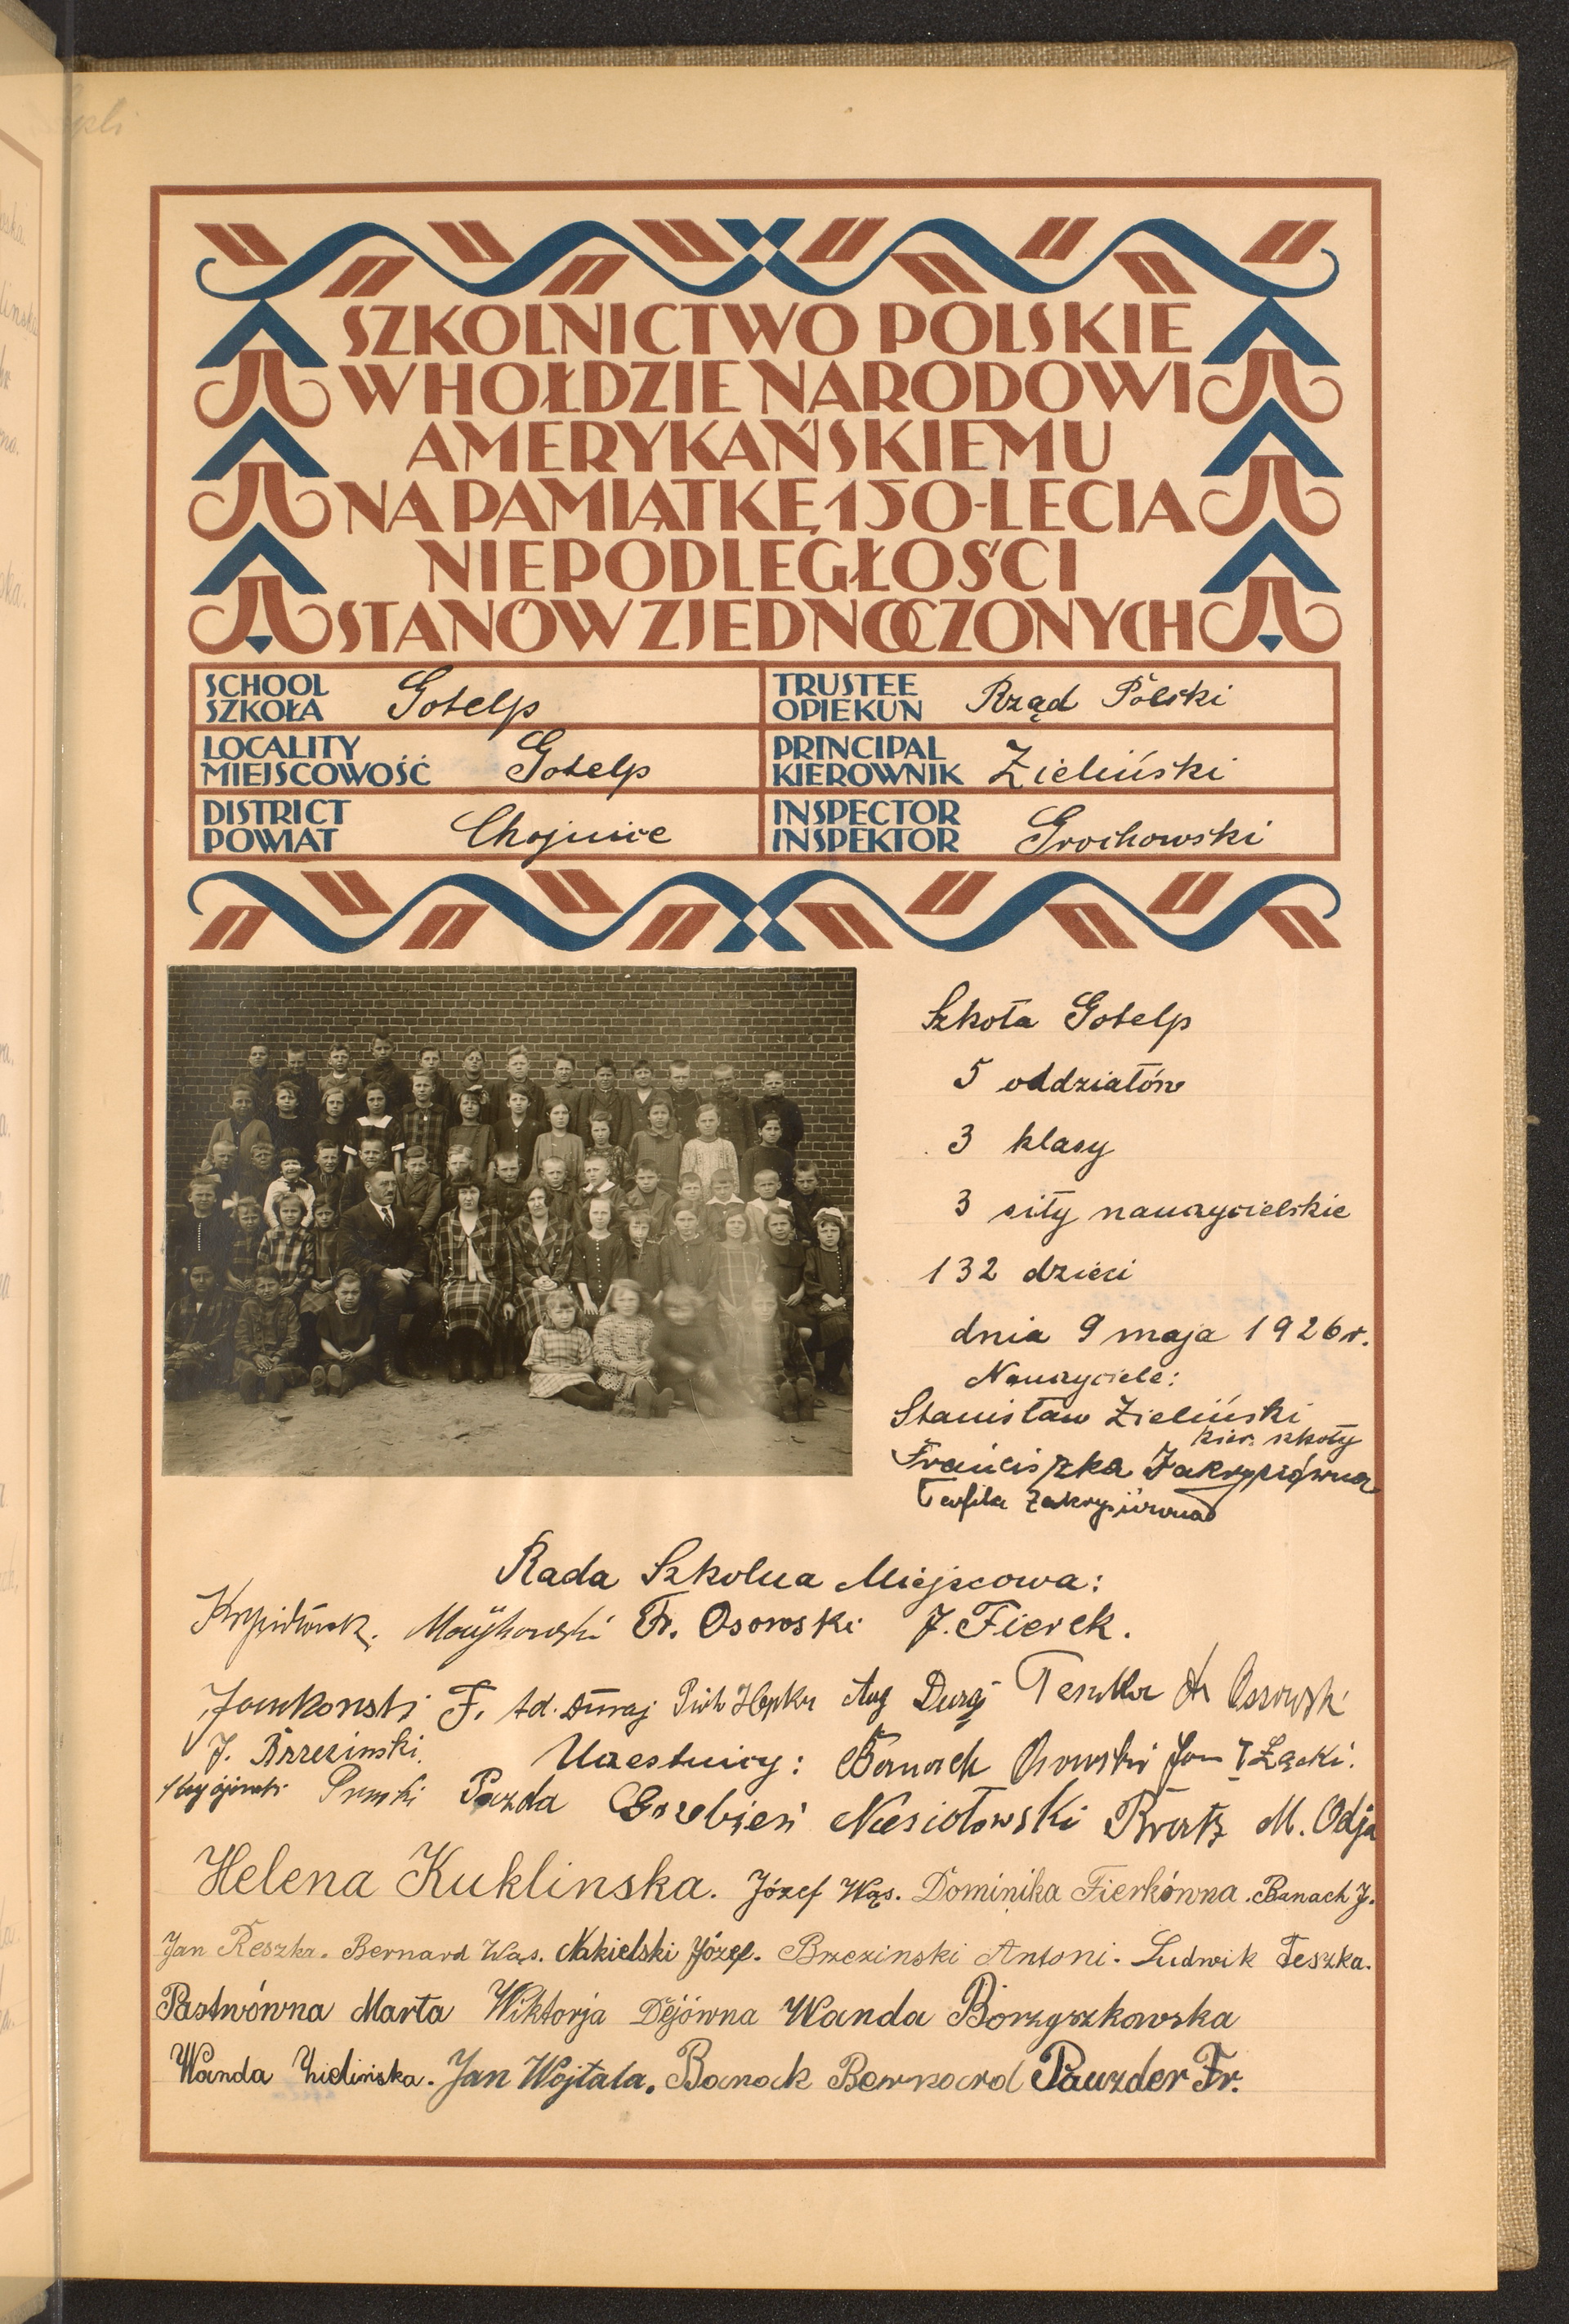 SZKOLNICTWO POLSKIE
W HOŁDZIE NARODOWI
AMERYKAŃSKIEMU
NA PAMIĄTKĘ 150-LECIA
NIEPODLEGŁOŚCI
STANÓW ZJEDNOCZONYCH
SCHOOL
SZKOŁA Gotelp
TRUSTEE
OPIEKUN Rząd Polski
LOCALITY
MIEJSCOWOŚĆ Gotelp
PRINCIPAL
KIEROWNIK Zieliński
DISTRICT
POWIAT Chojnice
INSPECTOR
INSPEKTOR Grochowski
Szkoła Gotelp
5 oddziałów
3 klasy
3 siły nauczycielskie
132 dzieci
dnia 9 maja 1926 r.
Nauczyciele:
Stanisław Zieliński
kier. szkoły
Franciszka Zakrysiówna
Teofila Zakrysiówna
Rada Szkolna Miejscowa:
Fr. Osowski J. Fierek.
F. Aug Ossowski
J. Brzezinski. Uczestnicy: Banach Osowski Jan Łącki.
Pauzda Grzebień Niesiołowski M. Odja
Helena Kuklinska. Józef Wąs. Dominika Fierkówna. Banach J.
Jan Reszka. Bernard Wąs. Nakielski Józef. Brzezinski Antoni. Ludwik Teszka.
Pastwówna Marta Wiktorja Dejówna Wanda Borzyszkowska
Wanda Zielińska. Jan Wojtala. Banak Bernard Pauzder Fr.